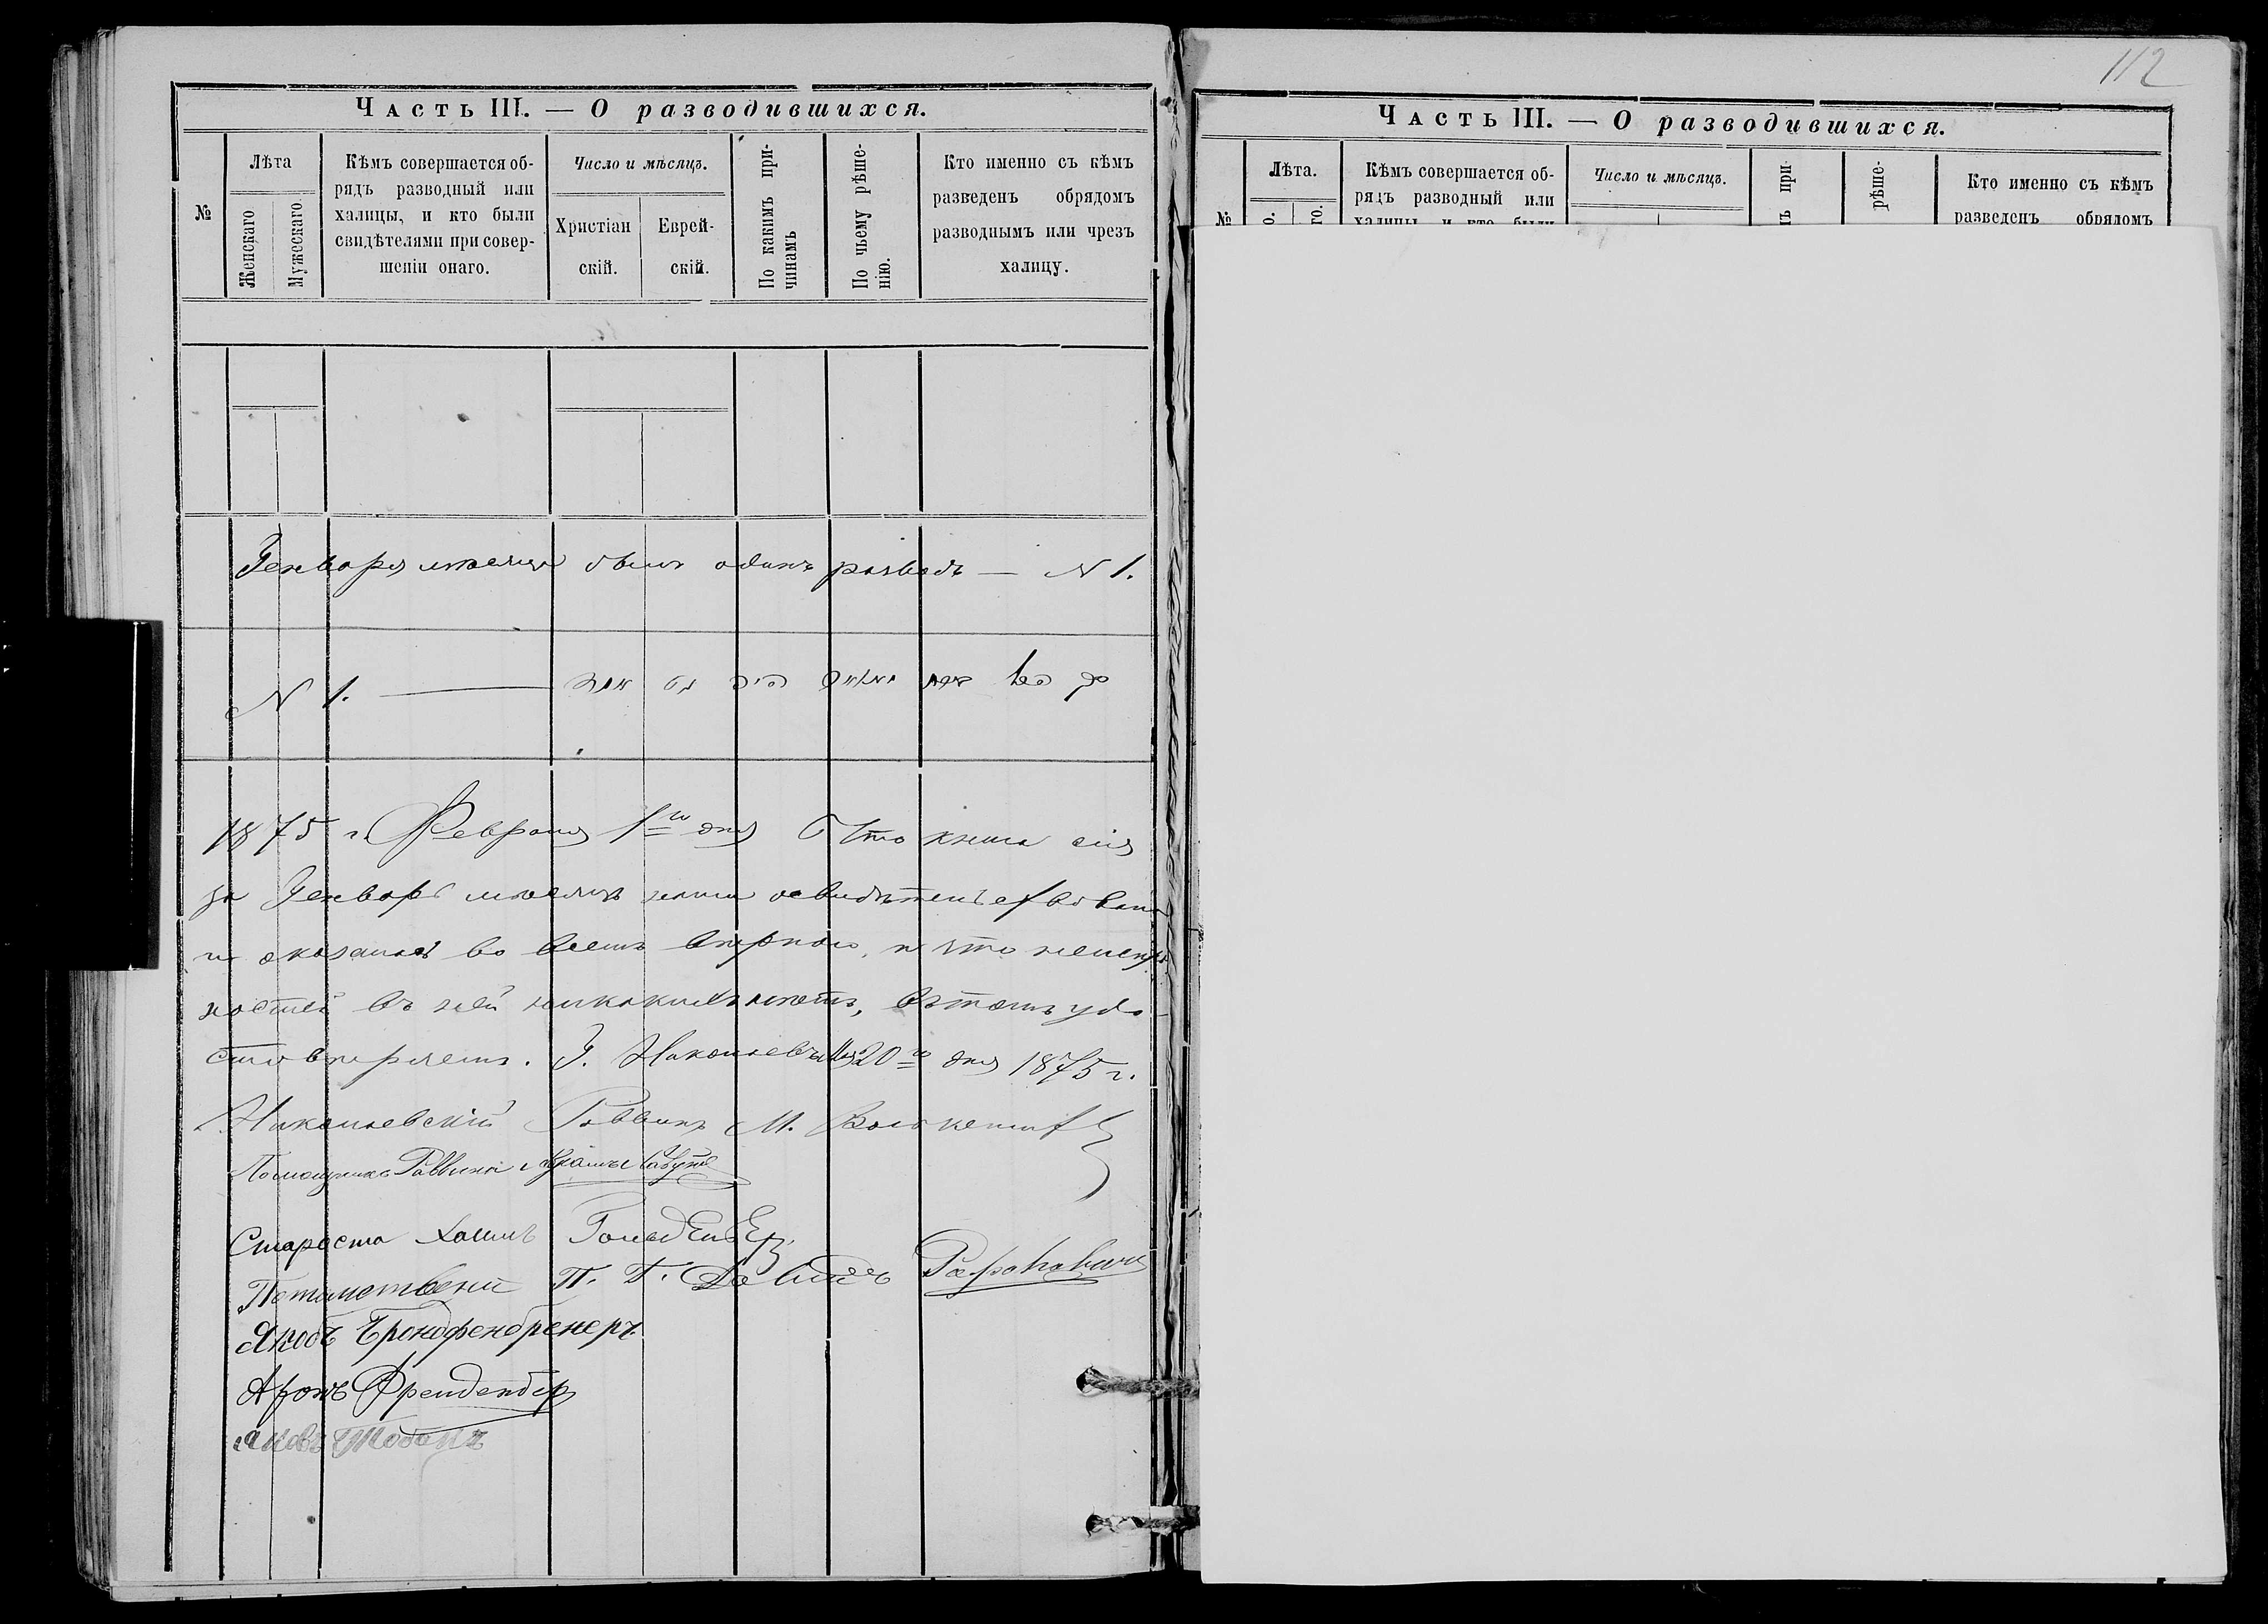 112
Часть III. — О разводившихся.
№
Лѣта
Женскаго
Мужескаго.
Кѣмъ совершается об-
рядъ разводный или
халицы, и кто были
свидѣтелями при совер-
шеніи онаго.
Число и мѣсяцъ.
Христіан
скій.
Еврей-
скій.
По какимъ при-
чинамъ
По чьему рѣше-
нію.
Кто именно съ кѣмъ
разведенъ обрядомъ
разводнымъ или чрезъ
халицу.
Генваря мѣсяца былъ одинъ разводъ — N 1.
N 1. —
1875 г. Февраля 1го дня Что книга сія
за Генварь мѣсяцъ нами освидѣтельствована
и оказалась во всемъ вѣрною, и что неисправ
ностей въ ней никакихъ нѣтъ, въ томъ удо-
стовѣряемъ. Г. Николаевъ 20го дня 1875 г.
Николаевскій Раввинъ М.
Помощникъ Раввина
Староста Хаимъ
П. Г. Давидъ Рафаловичъ
Якобъ Бронфенбренеръ
Аронъ Фрейденбер
Часть III. — О разводившихся.
№
Лѣта.
Кѣмъ совершается об-
рядъ разводный или
халицы, и кто были
Число и мѣсяцъ.
при-
рѣше-
Кто именно съ кѣмъ
разведенъ обрядомъ